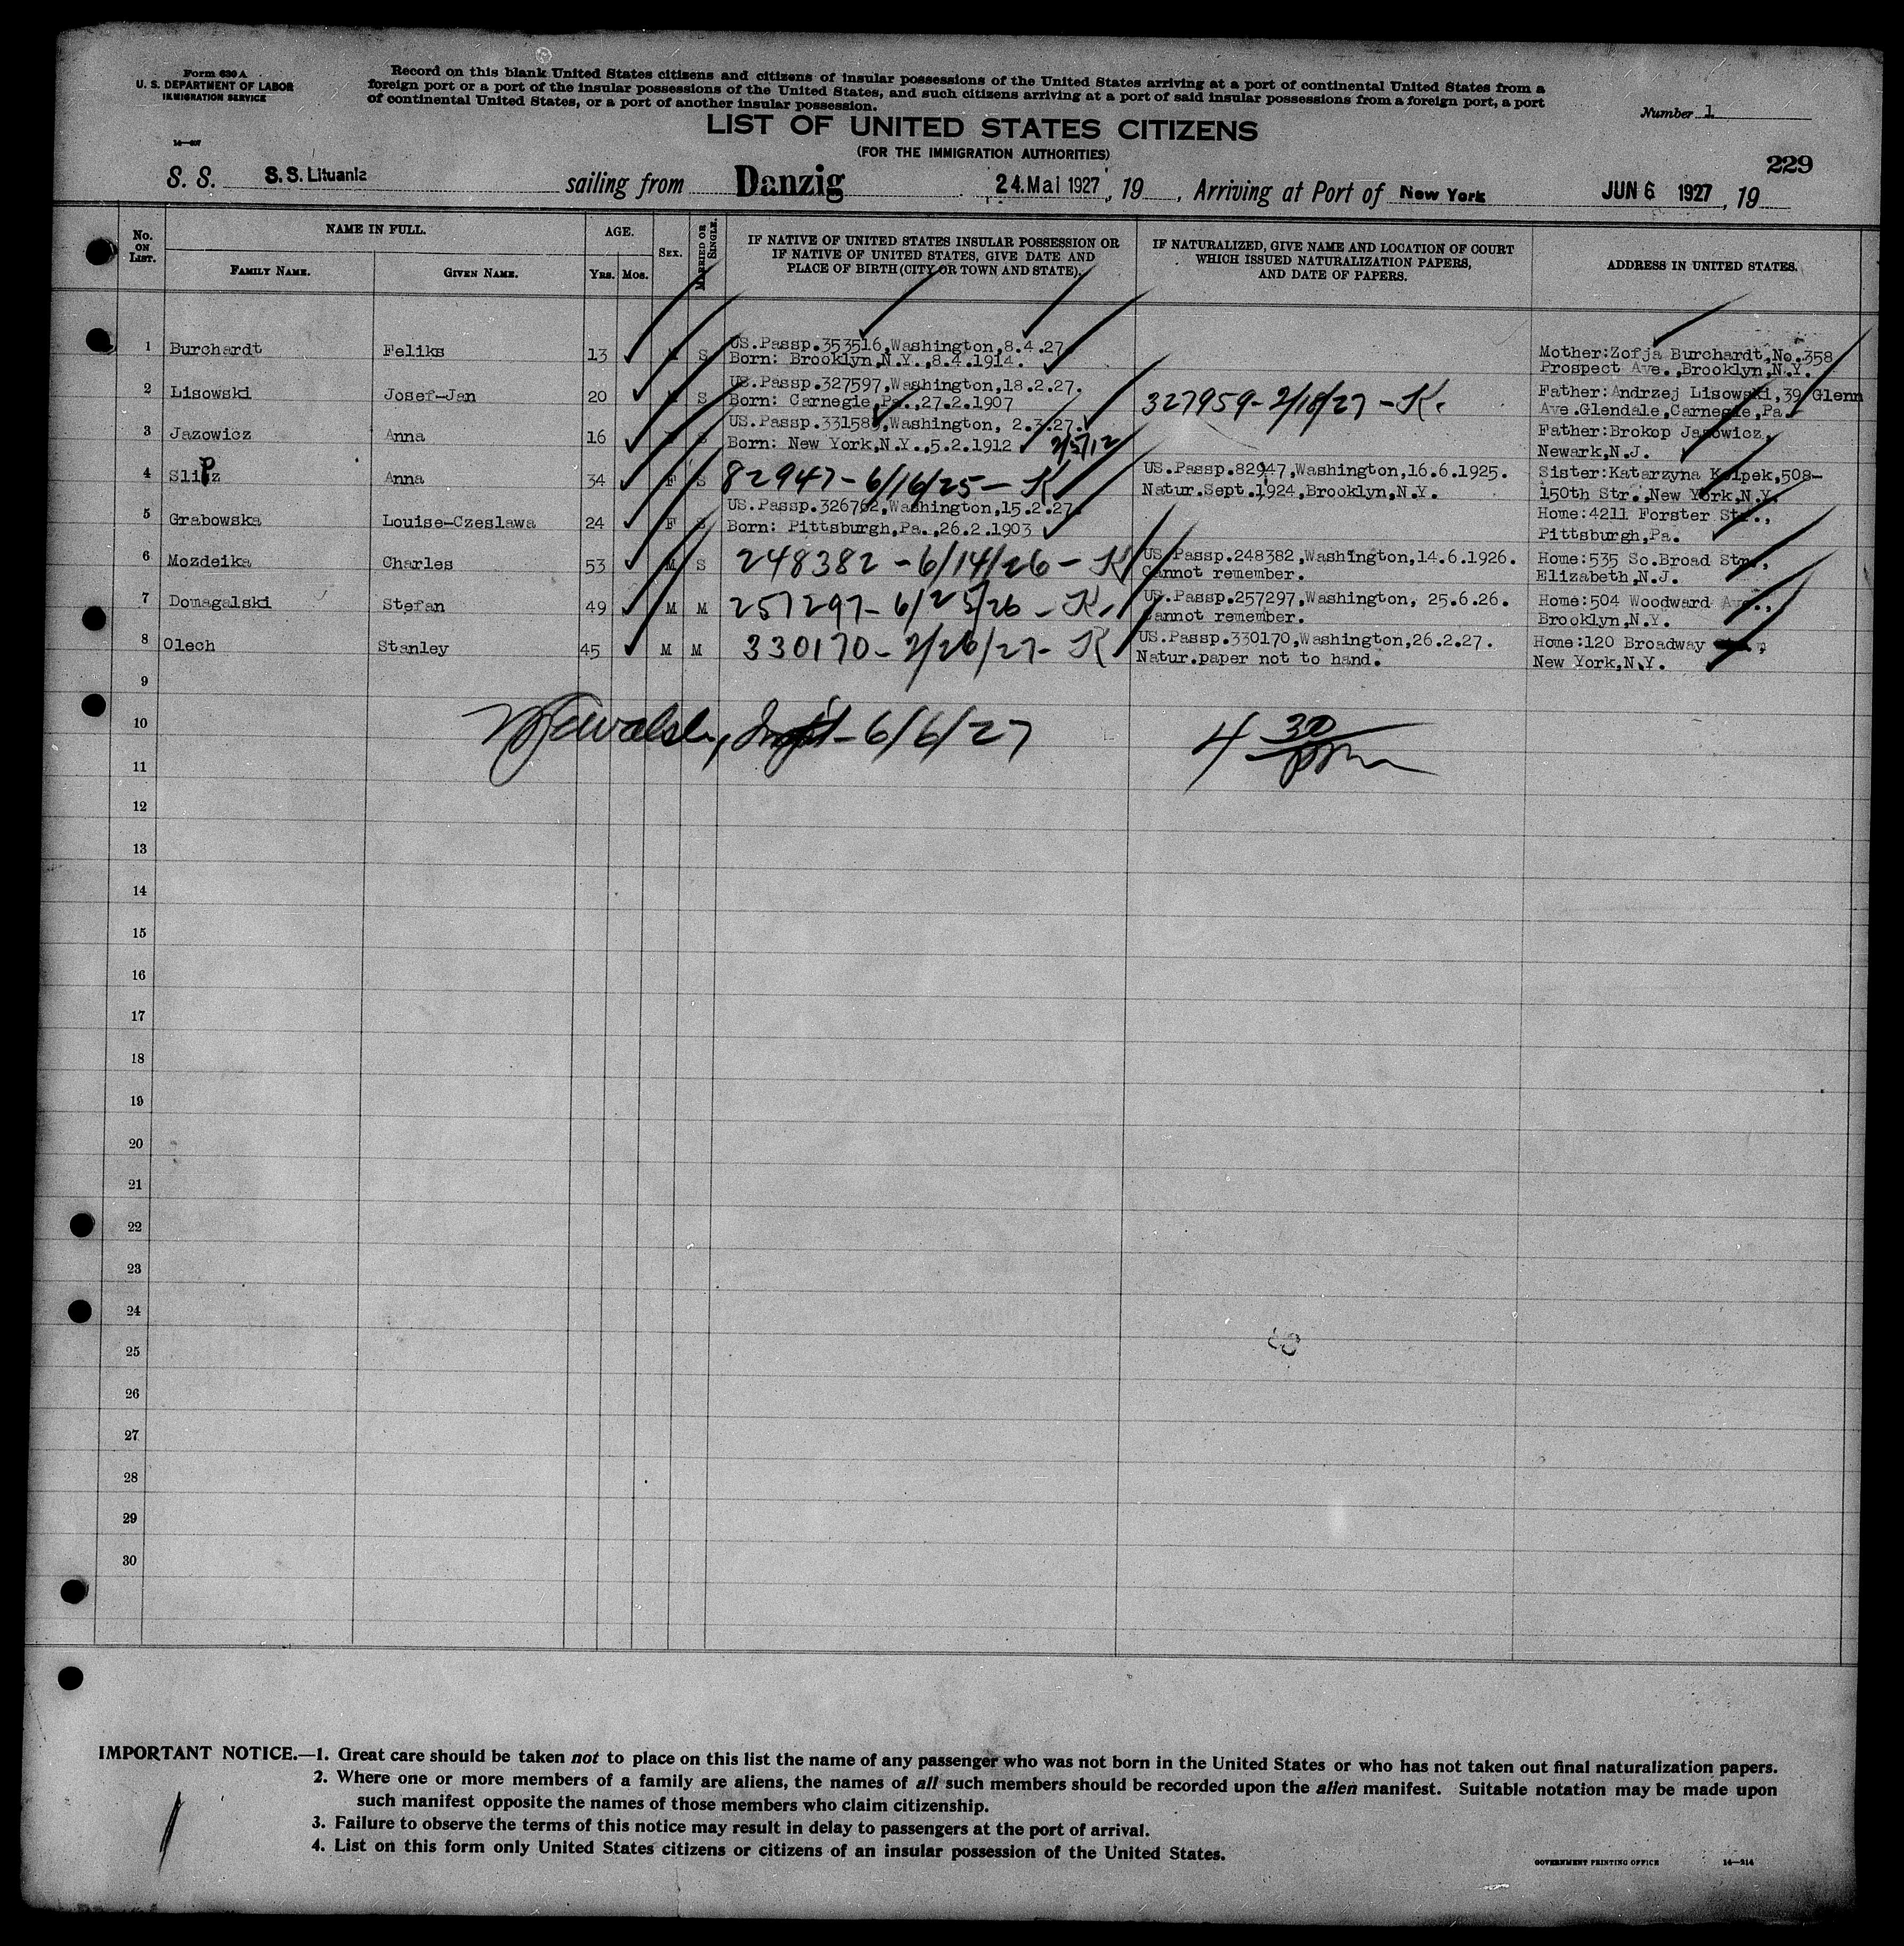 Form 630 A
U. S. DEPARTMENT OF LABOR
IMMIGRATION SERVICE
14—497
Record on this blank United States citizens and citizens of insular possessions of the United States arriving at a port of continental United States from a
foreign port or a port of the insular possessions of the United States, and such citizens arriving at a port of said insular possessions from a foreign port, a port
of continental United States, or a port of another insular possession.
Number 1
LIST OF UNITED STATES CITIZENS
(FOR THE IMMIGRATION AUTHORITIES)
229
S. S. S.S. Lituania sailing from Danzig 24. Mai 1927, 19 , Arriving at Port of New York JUN 6 1927, 19
No. ON LIST.
NAME IN FULL.
FAMILY NAME.
GIVEN NAME.
AGE.
YRS. MOS.
SEX.
MARRIED OR SINGLE.
IF NATIVE OF UNITED STATES INSULAR POSSESSION OR
IF NATIVE OF UNITED STATES, GIVE DATE AND
PLACE OF BIRTH (CITY OR TOWN AND STATE).
IF NATURALIZED, GIVE NAME AND LOCATION OF COURT
WHICH ISSUED NATURALIZATION PAPERS,
AND DATE OF PAPERS.
ADDRESS IN UNITED STATES.
1 Burchardt Feliks 13 S US.Passp.353516,Washington,8.4.27.
Born: Brooklyn,N.Y.,8.4.1914.
Mother:Zofja Burchardt,No.358
Prospect Ave.,Brooklyn,N.Y.
2 Lisowski Josef-Jan 20 S US.Passp.327597,Washington,18.2.27.
Born: Carnegie,Pa.,27.2.1907
327959-2/18/27-K.
Father:Andrzej Lisowski,39 Glenn
Ave.Glendale,Carnegie,Pa.
3 Jazowicz Anna 16 S US.Passp.33158, Washington, 2.3.27.
Born: New York,N.Y.,5.2.1912 2/5/12
Father:Brokop Jazowicz,
Newark,N.J.
4 Slipz Anna 34 F S 82947-6/16/25-K
US.Passp.82947,Washington,16.6.1925.
Natur.Sept.1924,Brooklyn,N.Y.
Sister:Katarzyna Kolpek,508-
150th Str.,New York,N.Y.
5 Grabowska Louise-Czeslawa 24 F S US.Passp.326762,Washington,15.2.27.
Born: Pittsburgh,Pa.,26.2.1903
Home:4211 Forster Str.,
Pittsburgh,Pa.
6 Mozdeika Charles 53 M S 248382-6/14/26-K
US.Passp.248382,Washington,14.6.1926.
Cannot remember.
Home:535 So.Broad Str.,
Elizabeth,N.J.
7 Domagalski Stefan 49 M M 257297-6/25/26-K.
US.Passp.257297,Washington, 25.6.26.
Cannot remember.
Home:504 Woodward Ave.,
Brooklyn,N.Y.
8 Olech Stanley 45 M M 330170-2/26/27-K
US.Passp.330170,Washington,26.2.27.
Natur.paper not to hand.
Home:120 Broadway
New York,N.Y.
9
10 6/6/27 4 30 pm
11
12
13
14
15
16
17
18
19
20
21
22
23
24
25
26
27
28
29
30
IMPORTANT NOTICE.—1. Great care should be taken not to place on this list the name of any passenger who was not born in the United States or who has not taken out final naturalization papers.
2. Where one or more members of a family are aliens, the names of all such members should be recorded upon the alien manifest. Suitable notation may be made upon
such manifest opposite the names of those members who claim citizenship.
3. Failure to observe the terms of this notice may result in delay to passengers at the port of arrival.
4. List on this form only United States citizens or citizens of an insular possession of the United States.
GOVERNMENT PRINTING OFFICE 14—214